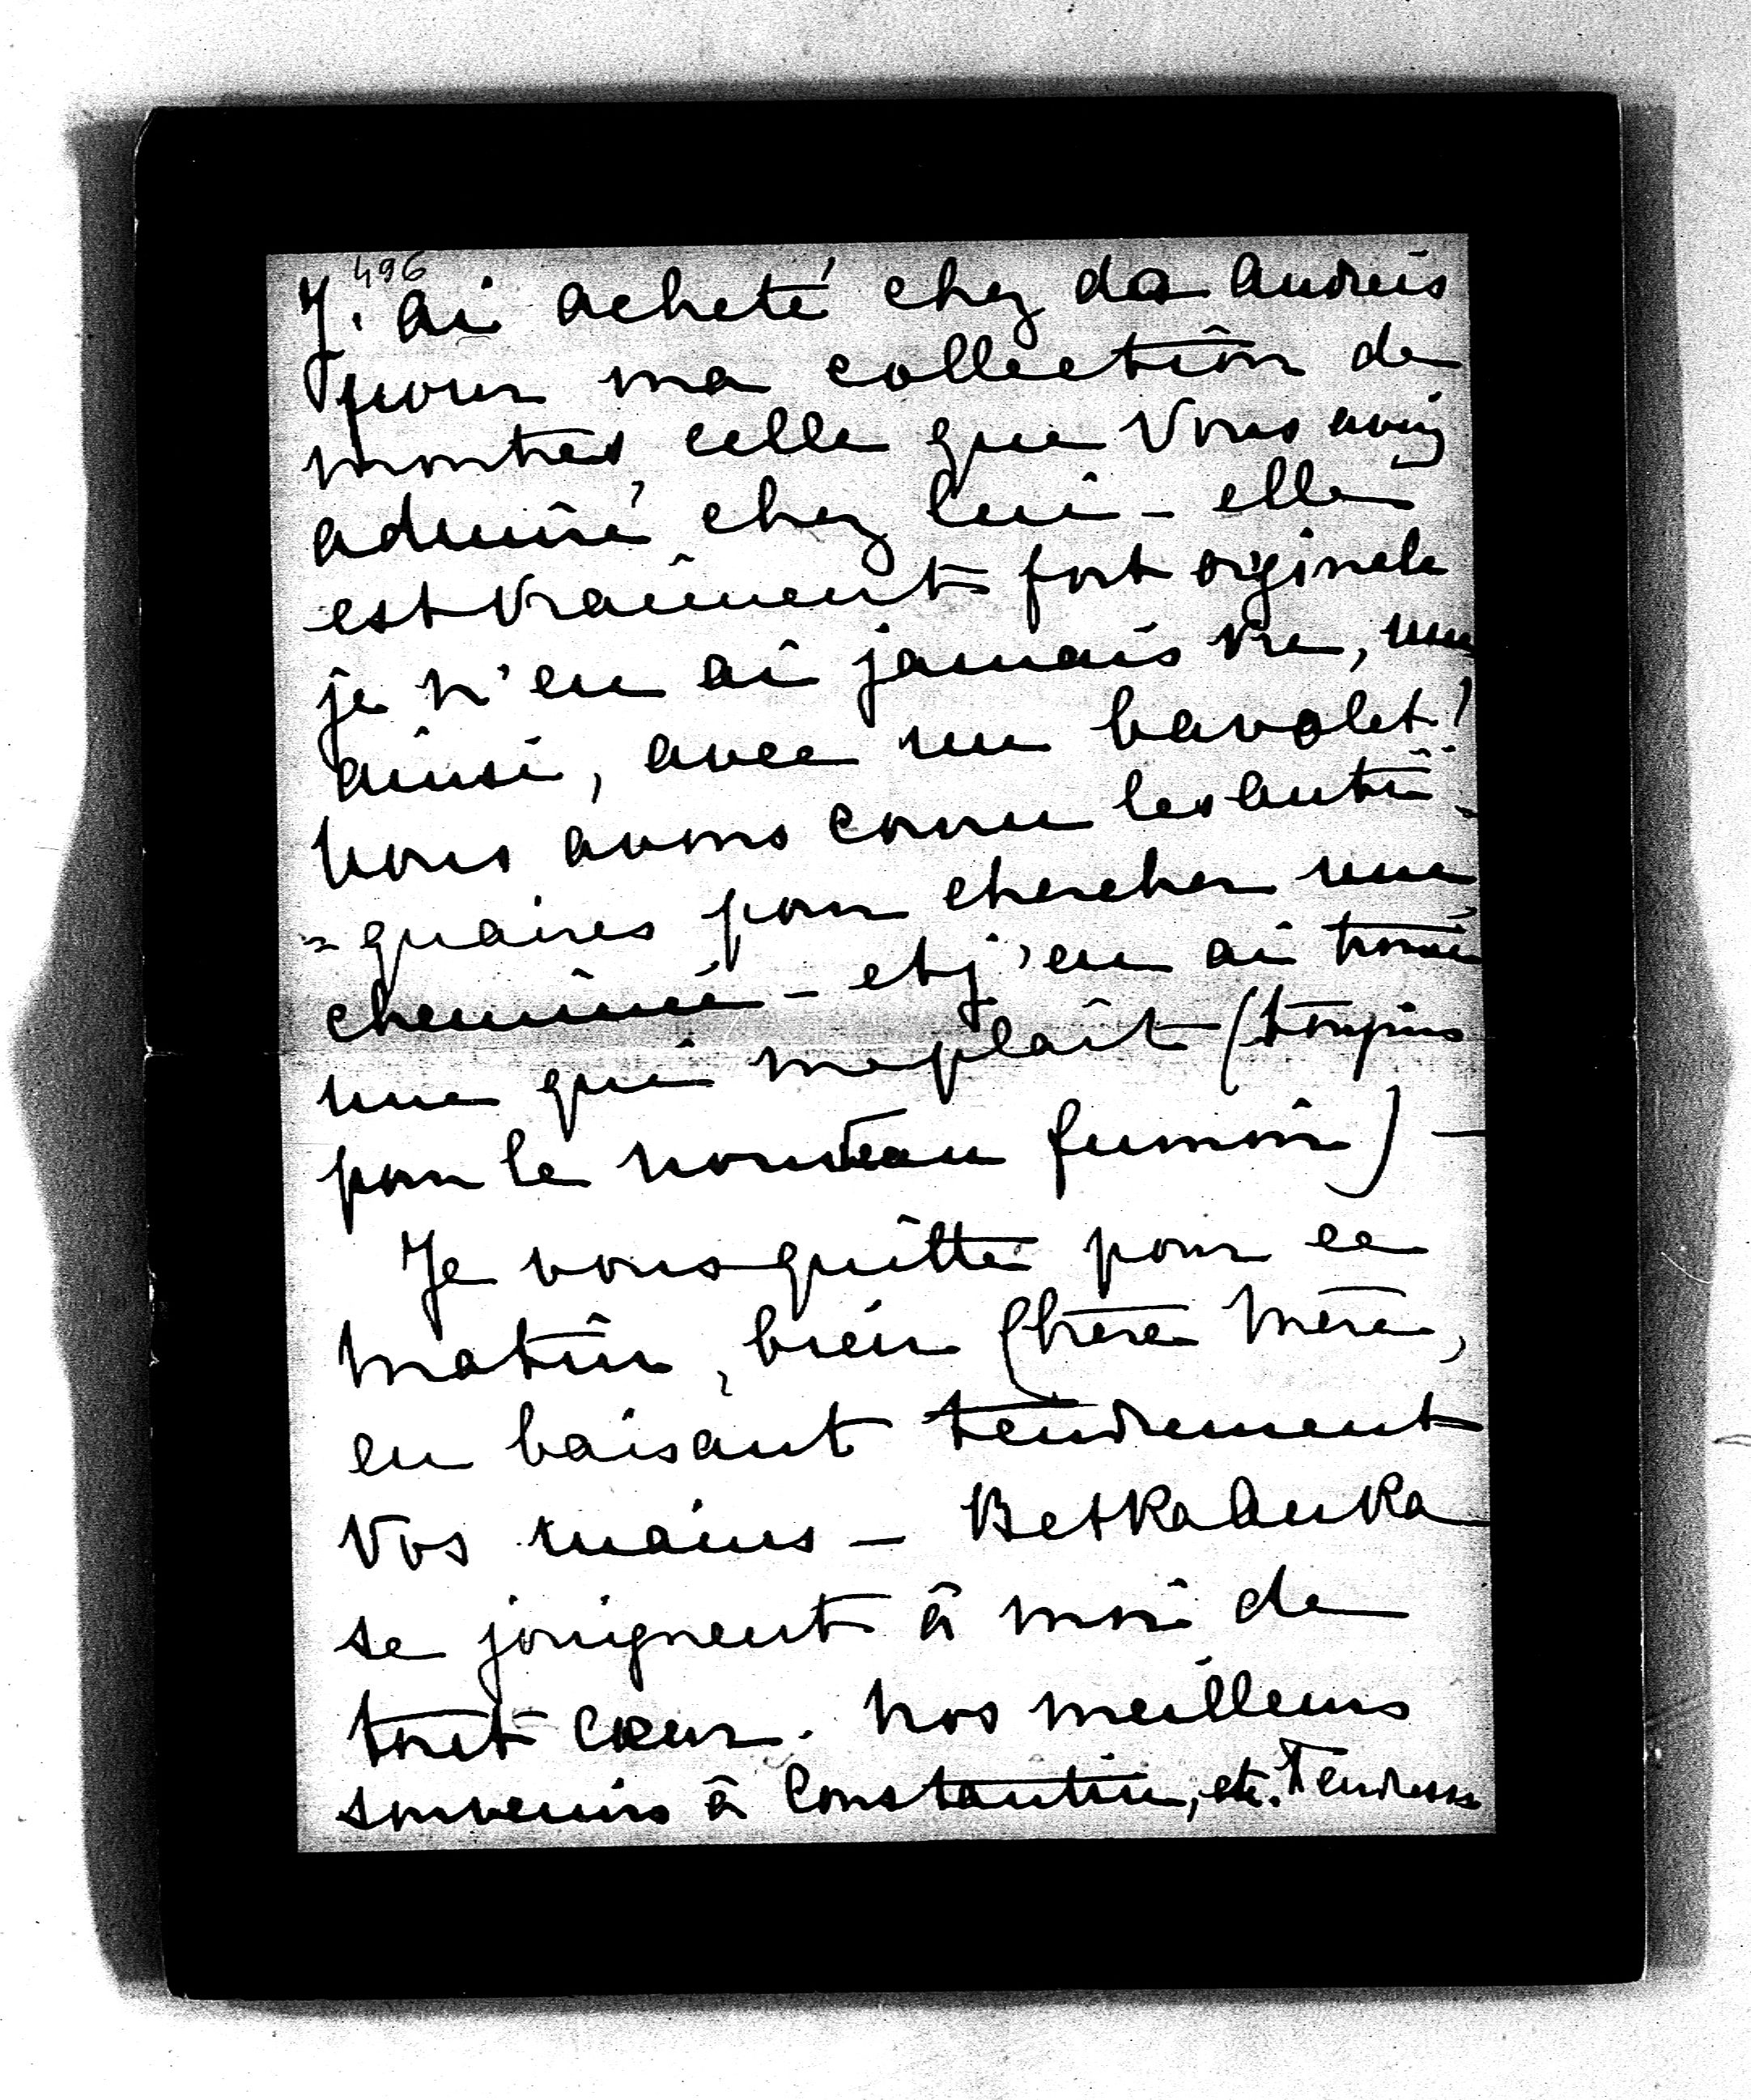 496
J'ai acheté chez da Andreis
pour ma collection de
montres, celle que Vous aviez
admiré chez lui - elle
est vraiment fort originale
je n'en ai jamais vue, une
ainsi, avec un bavolet!
Nous avons couru les anti-
=quaires pour chercher une
cheminée - et j'en ai trouvé
une qui me plaît (toujours
pour le nouveau fumoir) -
Je vous quitte pour ce
matin, bien Chère Mère,
en baisant tendrement
Vos mains - Betka Anka
se joignent à moi de
tout cœur. Nos meilleurs
souvenirs à Constantin, etc. Tendresse